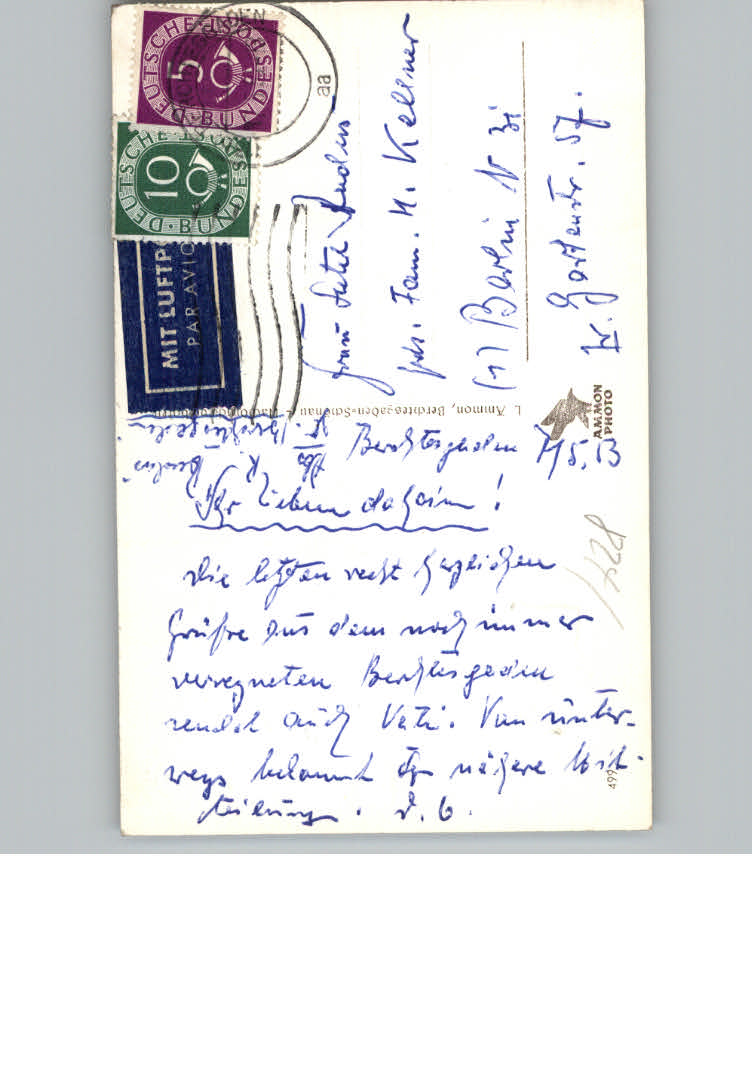 DEUTSCHE · BUNDESPOST
5
DEUTSCHE · BUNDESPOST
10
aa
MIT LUFTP
PAR AVIO
Frau
Fam. H. Kellner
(1) Berlin N 31
Gartenstr. 57.
L. Ammon, Berchtesgaden-Schönau
AMMON
PHOTO
Berchtesgaden
Berlin
Berchtesgaden 7/5.53
Ihr Lieben daheim!
Die letzten recht herzlichen
Grüße aus dem noch immer
verregneten Berchtesgaden
sendet Euch Vati. Von unter-
wegs bekommt Ihr nähere Mit-
teilung. D. O.
499